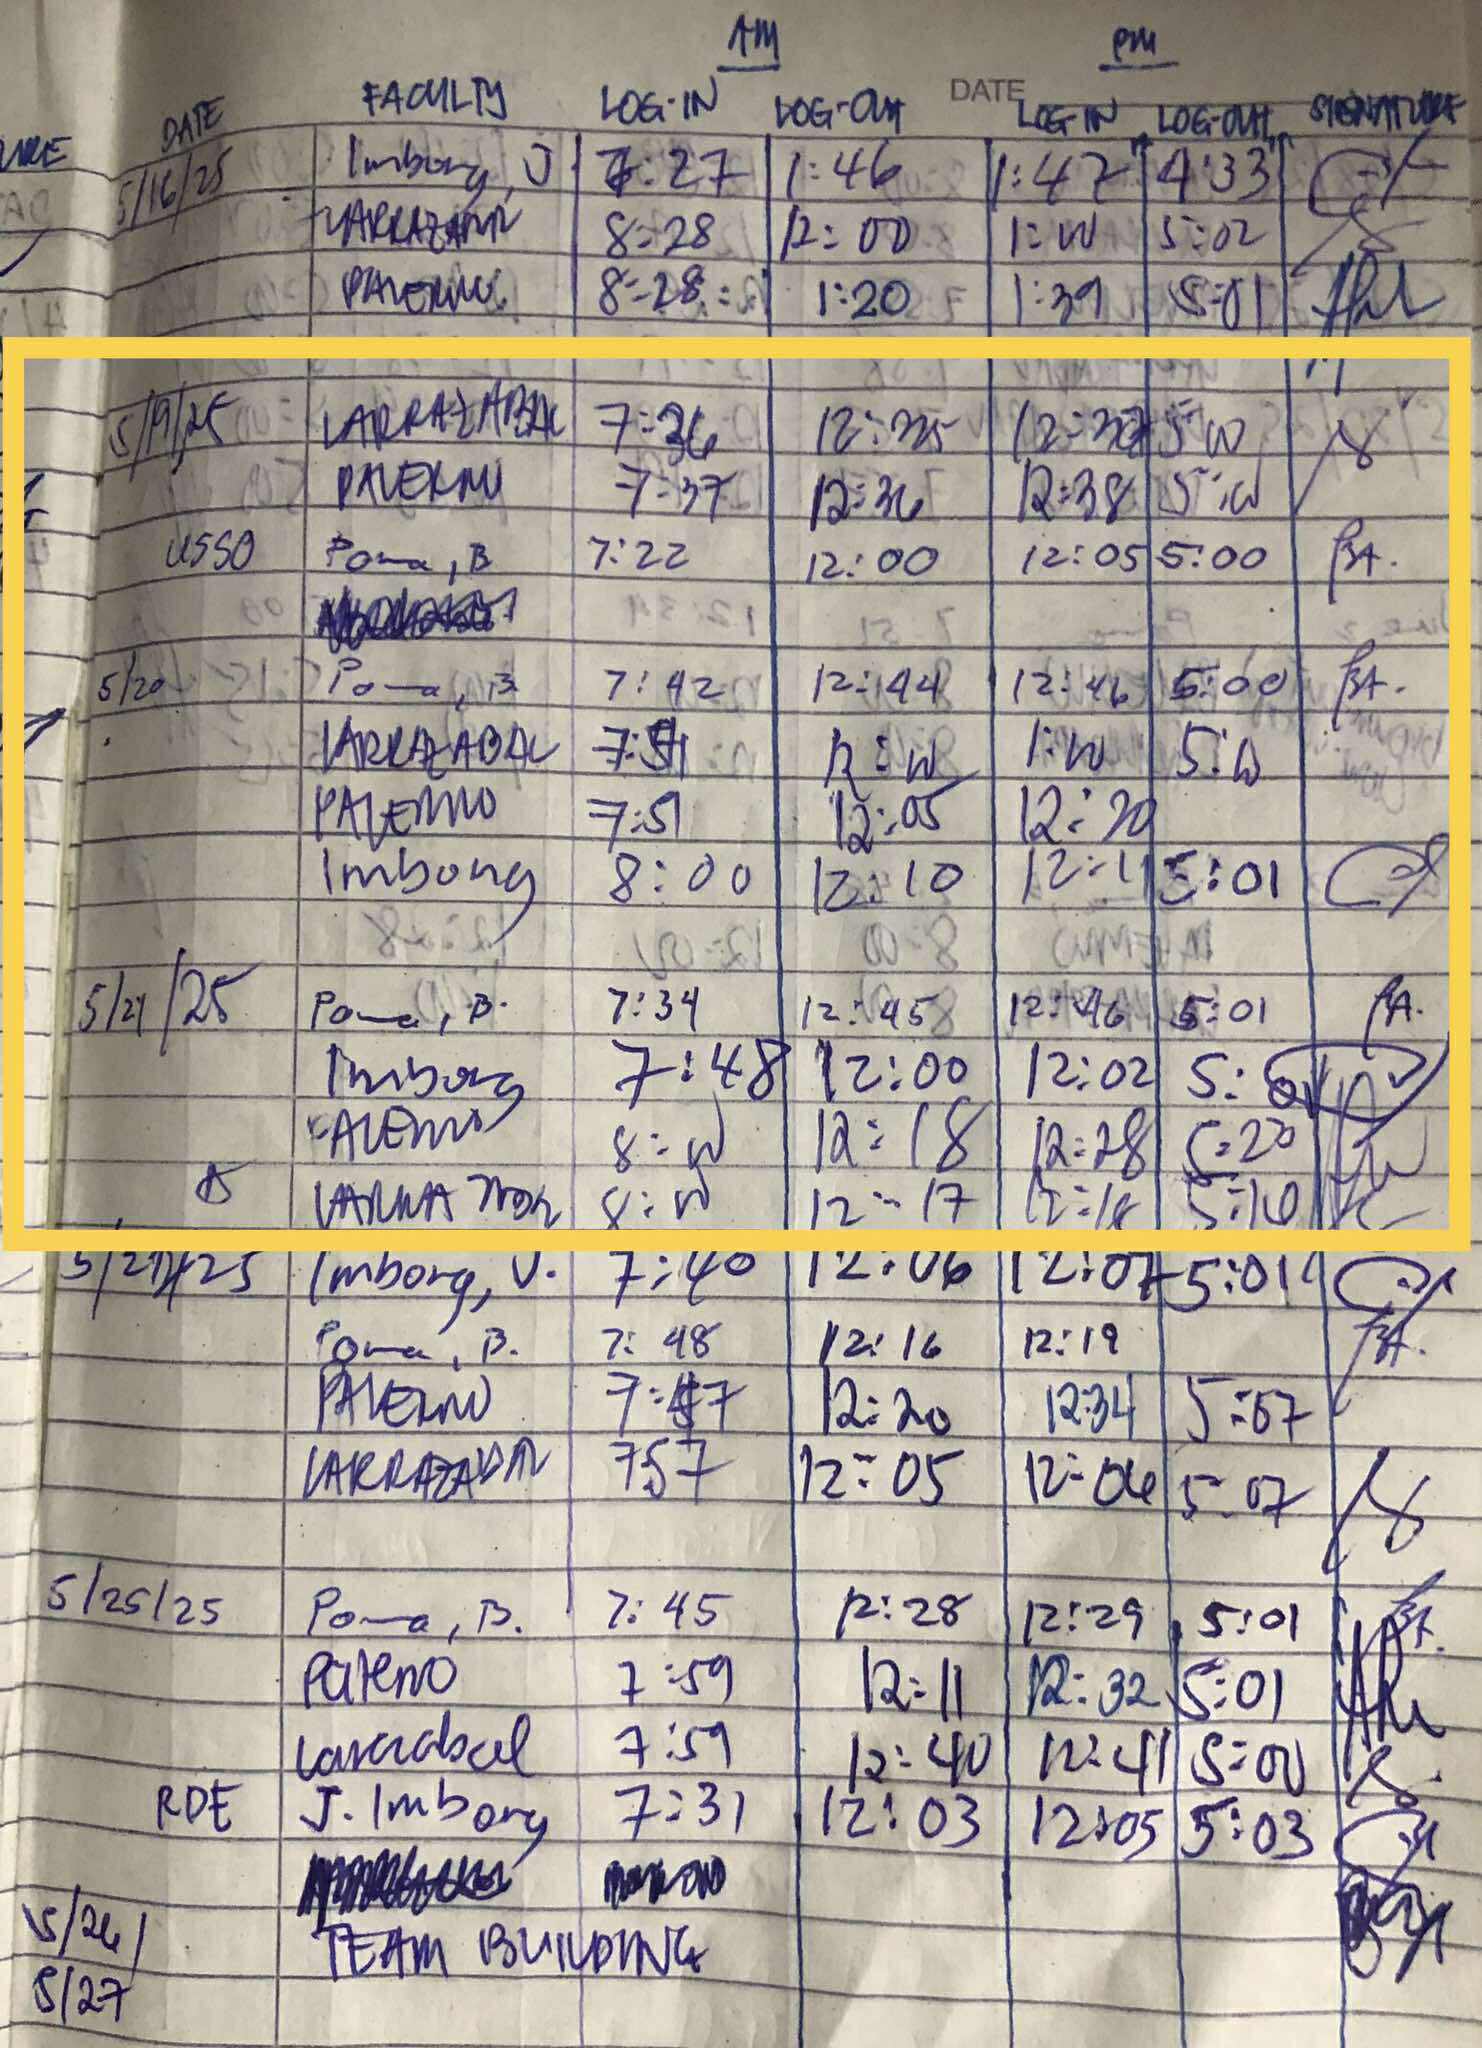 AM PM
DATE
DATE FACULTY LOG-IN LOG-OUT LOG-IN LOG-OUT SIGNATURE
5/16/25 Imbong, J 7:27 1:46 1:47 4:33
8:28 12:00 1:00 5:02
PALERMO 8:28 1:20 1:39 5:01
5/19/25 LARRAZABAL 7:36 12:35 5:00
PALERMO 7:37 12:36 12:38 5:00
USSO Poma, B 7:22 12:00 12:05 5:00 BA.
5/20 Poma, B 7:42 12:44 12:46 5:00 BA.
LARRAZABAL 7:51 12:00 1:00 5:00
PALERMO 7:51 12:05 12:20
Imbong 8:00 12:10 12:11 5:01
5/21/25 Poma, B. 7:34 12:45 12:46 5:01 BA.
Imbong 7:48 12:00 12:02 5:01
PALERMO 8:00 12:18 12:28 5:20
8:00 12:17 12:18 5:10
Imbong, J. 7:40 12:06 12:07 5:01
Poma, B. 7:48 12:16 12:19 BA.
PALERMO 7:47 12:20 12:34 5:07
LARRAZABAL 757 12:05 12:06 5:07
5/25/25 Poma, B. 7:45 12:28 12:29 5:01 BA.
Palermo 7:59 12:11 12:32 5:01
Larrazabal 7:59 12:40 12:41 5:00
RDE J. Imbong 7:31 12:03 12:05 5:03
5/26/ TEAM BUILDING
5/27